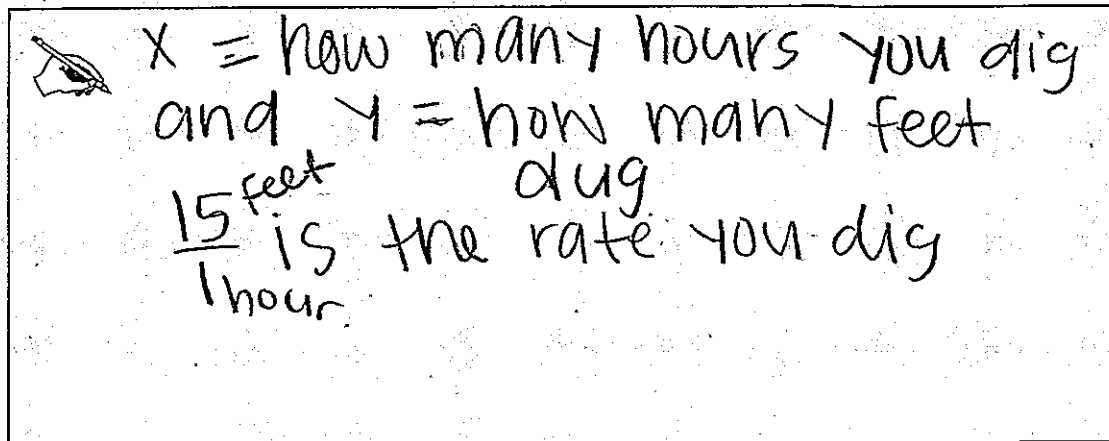 x = how many hours you dig
and y = how many feet
dug
15 feet
is the rate you dig
1 hour